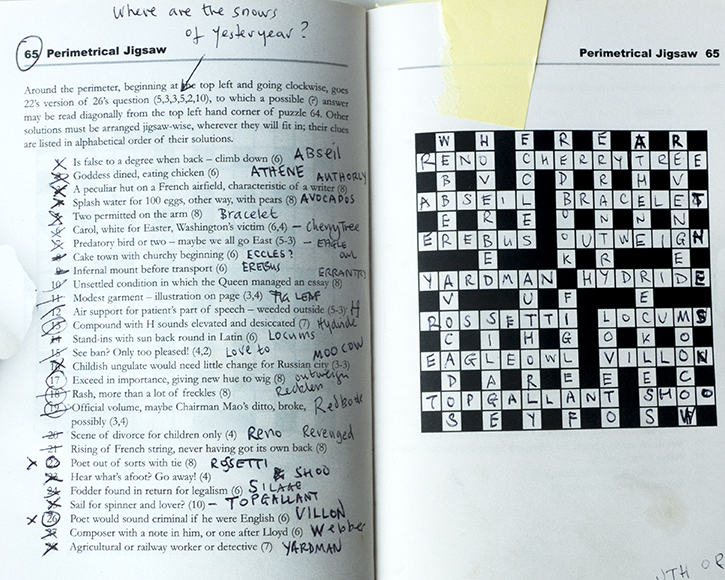 Where are the snows
of yesteryear?
65 Perimetrical Jigsaw
Around the perimeter, beginning at the top left and going clockwise, goes
22's version of 26's question (5,3,3,5,2,10), to which a possible (?) answer
may be read diagonally from the top left hand corner of puzzle 64. Other
solutions must be arranged jigsaw-wise, wherever they will fit in; their clues
are listed in alphabetical order of their solutions.
Is false to a degree when back – climb down (6) ABSeil
Goddess dined, eating chicken (6) ATHENE AUTHORLY
A peculiar hut on a French airfield, characteristic of a writer (8)
Splash water for 100 eggs, other way, with pears (8) AVOCADOS
Two permitted on the arm (8) Bracelet
Carol, white for Easter, Washington's victim (6,4) – CherryTree
Predatory bird or two – maybe we all go East (5-3) – EAGLE
Cake town with churchy beginning (6) ECCLES? owl
Infernal mount before transport (6) EREBUS
Unsettled condition in which the Queen managed an essay (8) ERRANTRY
Modest garment – illustration on page (3,4) FIG LEAF
Air support for patient's part of speech – weeded outside (5-3) H
13 Compound with H sounds elevated and desiccated (7) Hydride
Stand-ins with sun back round in Latin (6) Locums
See ban? Only too pleased! (4,2) LOVE to
Childish ungulate would need little change for Russian city (3-3) MOO COW
17 Exceed in importance, giving new hue to wig (8) outweigh
18 Rash, more than a lot of freckles (8) Reckless
19 Official volume, maybe Chairman Mao's ditto, broke, Redbook
possibly (3,4)
Scene of divorce for children only (4) Reno Revenged
Rising of French string, never having got its own back (8)
x Poet out of sorts with tie (8) ROSSETTI
Hear what's afoot? Go away! (4) SHOO
Fodder found in return for legalism (6) SILAGE
Sail for spinner and lover? (10) – TOPGALLANT
x 26 Poet would sound criminal if he were English (6) VILLON
Composer with a note in him, or one after Lloyd (6) Webber
Agricultural or railway worker or detective (7) YARDMAN
Perimetrical Jigsaw 65
W H E R E A R
RENO CHERRYTREE
ABSEIL BRACELET
EREBUS OUTWEIGH
YARDMAN HYDRIDE
ROSSETTI LOCUMS
EAGLEOWL VILLON
TOPGALLANT SHOO
S E Y F O S W